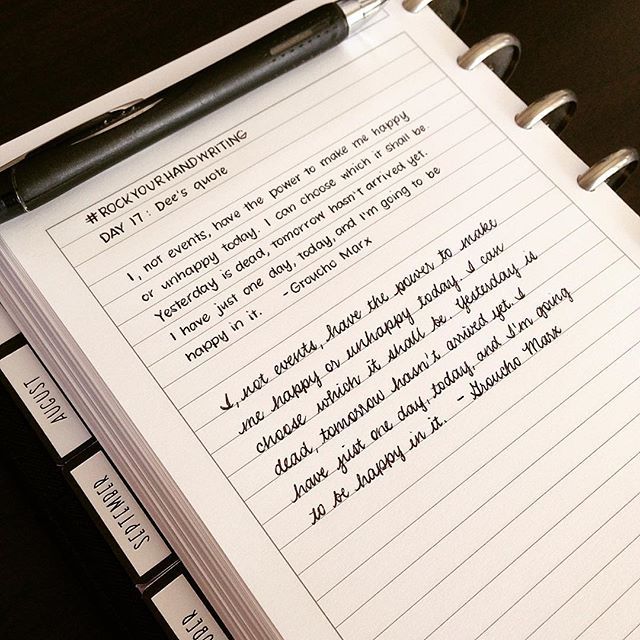 #ROCKYOURHANDWRITING
DAY 17: Dee's quote
I, not events, have the power to make me happy
or unhappy today. I can choose which it shall be.
Yesterday is dead, tomorrow hasn't arrived yet.
I have just one day, today, and I'm going to be
happy in it. -Groucho Marx
I, not events, have the power to make
me happy or unhappy today. I can
choose which it shall be. Yesterday is
dead, tomorrow hasn't arrived yet. I
have just one day, today, and I'm going
to be happy in it. - Groucho Marx
AUGUST
SEPTEMBER
OBER